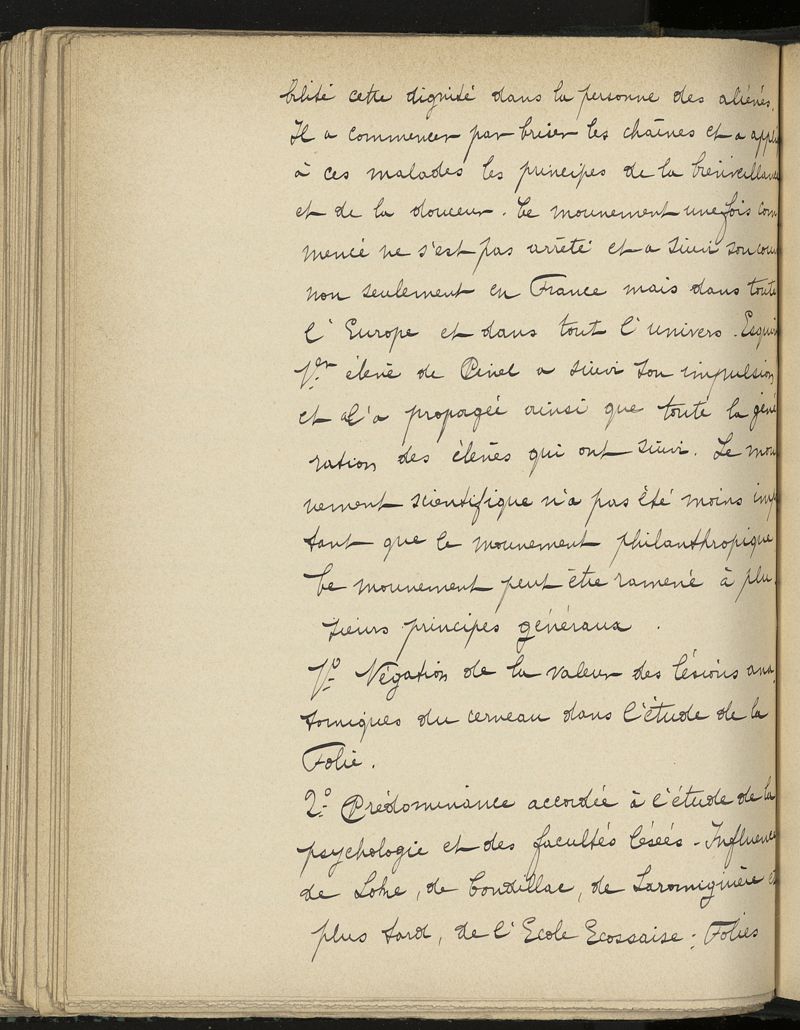 bilité cette dignité dans la personne des aliénés.
Il a commencer par briser les chaînes et a appli
à ces malades les principes de la bienveillance
et de la douceur. Ce mouvement une fois com
mencé ne s'est pas arrêté et a suivi son cour
non seulement en France mais dans toute
l'Europe et dans tout l'univers. Esquir
1er élève de Pinel a suivi son impulsion
et l'a propagée ainsi que toute la géné
ration des élèves qui ont suivi. Le mou
vement scientifique n'a pas été moins imp
tant que le mouvement philanthropique
Ce mouvement peut être ramené à plu
sieurs principes généraux.
1o Négation de la valeur des lésions ana
tomiques du cerveau dans l'étude de la
Folie.
2o Prédominance accordée à l'étude de la
psychologie et des facultés lésées - Influence
de Loke, de Condillac, de Laromiguière et
plus tard, de l'Ecole Ecossaise; Folies